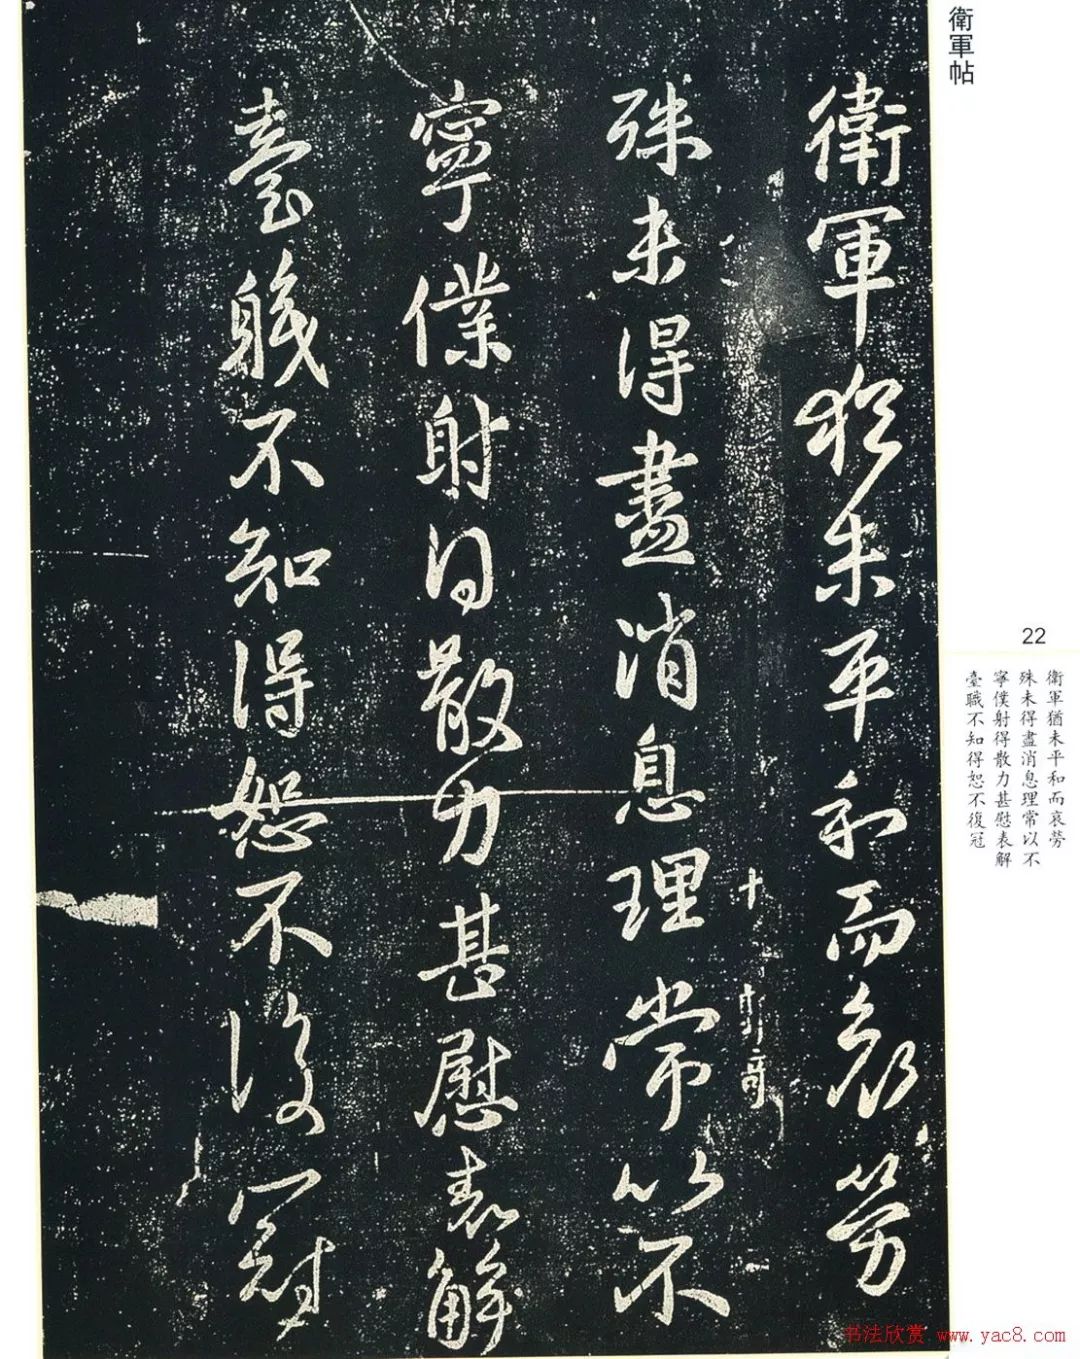 衛軍帖
衛軍猶未平和而哀勞
殊未得盡消息理常以不
寧僕射得散力甚慰表解
臺職不知得恕不復冠
十
22
衛軍猶未平和而哀勞
殊未得盡消息理常以不
寧僕射得散力甚慰表解
臺職不知得恕不復冠
书法欣赏 www.yac8.com